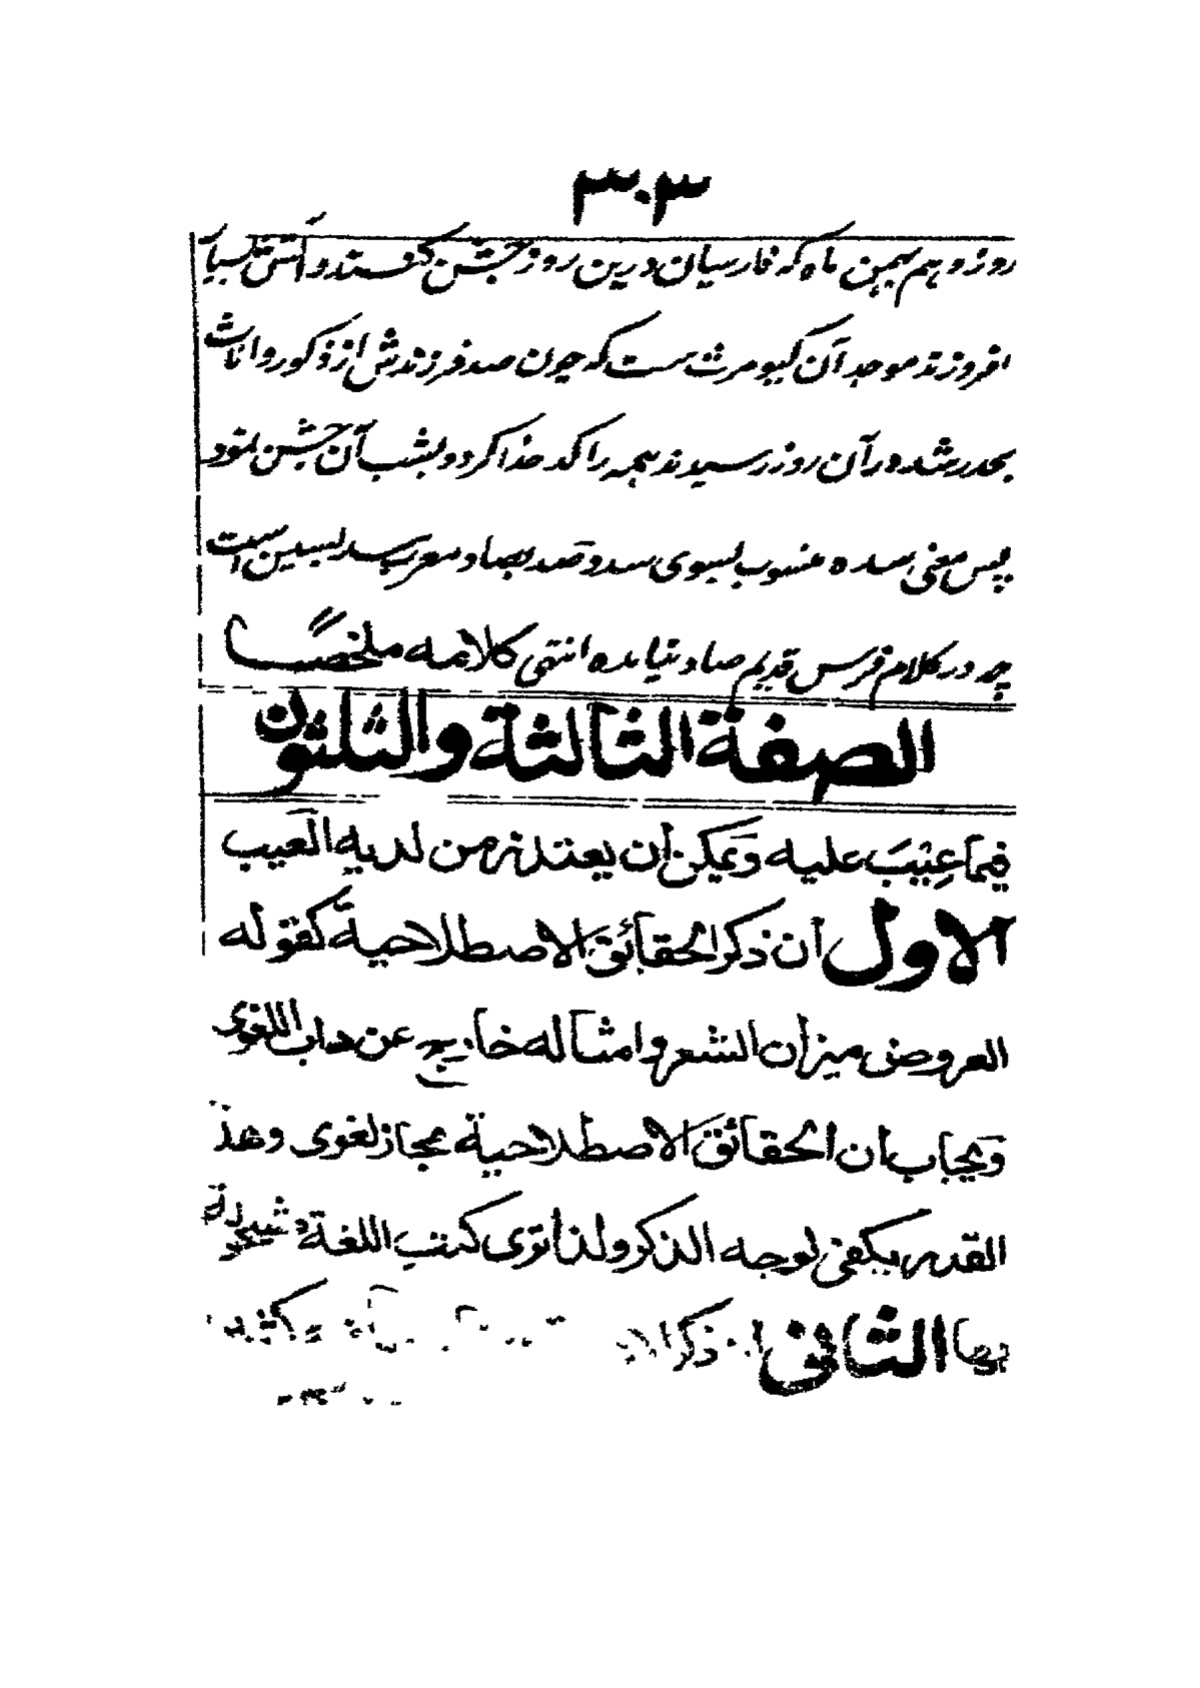 ۳۰۳
روز دهم بهمن ماه که فارسیان درین روز جشن کنند و آتش بسیار
افروزند موجد آن کیومرث ست که چون صد فرزندش از ذکور و اناث
بحد رشد در آن روز رسیدند همه را کد خدا کرد و بشب آن جشن نمود
پس معنی سده منسوب بسوی سد و صد بصاد معرب سد بسین است
چه در کلام فرس قدیم صاد نیامده انتهی کلامه ملخصًا
الصفة الثالثة والثلثون
فيما عِيْبَ عليه وَيمكن أن يعتذر من لديه العيب
الاول أن ذكر الحقائق الاصطلاحية كقوله
العروض ميزان الشعر وامثاله خارج عن داب اللغوى
وَيجاب بان الحقائق الاصطلاحية مجاز لغوى وهذا
القدر يكفى لوجه الذكر ولذا ترى كتب اللغة مشحونة
بها الثانى ان ذكر